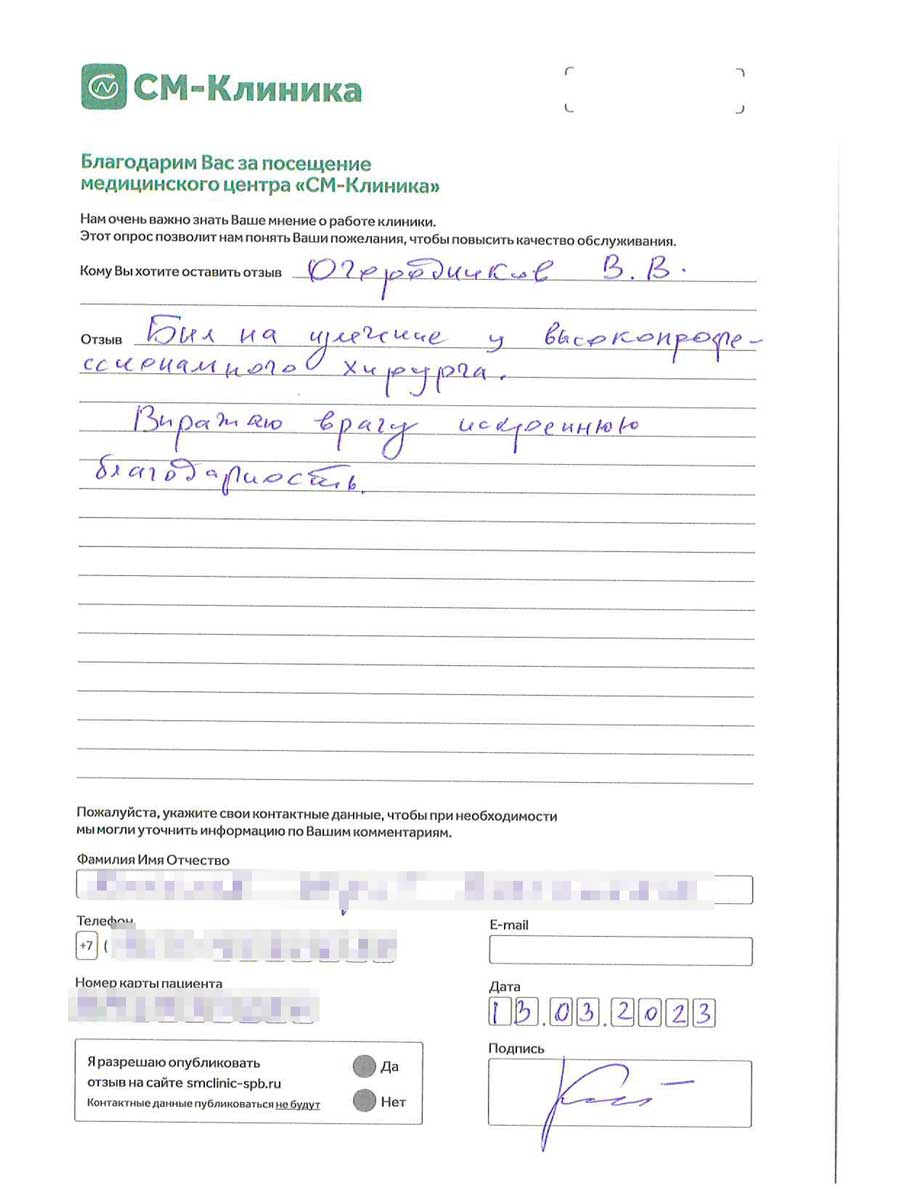 СМ-Клиника
Благодарим Вас за посещение
медицинского центра «СМ-Клиника»
Нам очень важно знать Ваше мнение о работе клиники.
Этот опрос позволит нам понять Ваши пожелания, чтобы повысить качество обслуживания.
Кому Вы хотите оставить отзыв Огородников В.В.
Отзыв Был на излечение у высокопрофе-
ссионального хирурга.
Выражаю врачу искреннюю
благодарность.
Пожалуйста, укажите свои контактные данные, чтобы при необходимости
мы могли уточнить информацию по Вашим комментариям.
Фамилия Имя Отчество
Телефон
E-mail
+7 (
Номер карты пациента
Дата
13.03.2023
Я разрешаю опубликовать
отзыв на сайте smclinic-spb.ru
Контактные данные публиковаться не будут
Да
Нет
Подпись